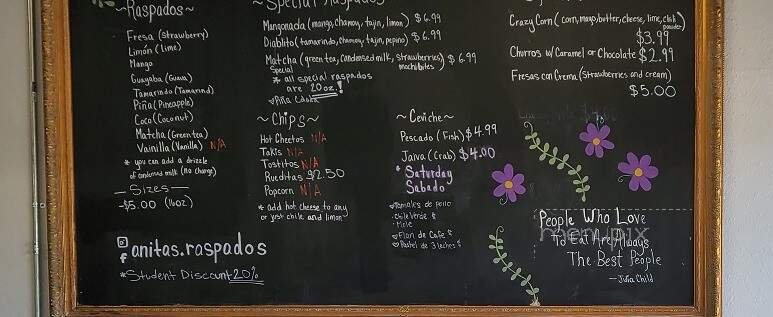 ~Raspados~
Fresa (Strawberry)
Limón (Lime)
Mango
Guayaba (Guava)
Tamarindo (Tamarind)
Piña (Pineapple)
Coco (Coconut)
Matcha (Green tea)
Vainilla (Vanilla) N/A
* you can add a drizzle
of condensed milk (no charge)
—Sizes—
-$5.00 (16oz)
anitas.raspados
*Student Discount 20%
~Special Raspados~
Mangonada (mango, chamoy, tajin, limon) $6.99
Diablito (tamarindo, chamoy, tajin, pepino) $6.99
Matcha (green tea, condensed milk, strawberries) $6.99
Special
mochi bites
* all special raspados
are 20oz!
Piña
~Chips~
Hot Cheetos N/A
Takis N/A
Tostitos N/A
Rueditas $2.50
Popcorn N/A
* add hot cheese to any
or just chile and limon
~Ceviche~
Pescado (Fish) $4.99
Jaiva (Crab) $4.00
* Saturday
Sabado
Tamales de
-Chile Verde $
-Mole
Flan de Cafe $
Pastel de 3 leches $
Crazy Corn (corn, mayo/butter, cheese, lime, chili
powder)
$3.99
Churros w/ Caramel or Chocolate $2.99
Fresas con Crema (Strawberries and cream)
$5.00
People Who Love
To Eat Are Always
The Best People
—Julia Child
menupix